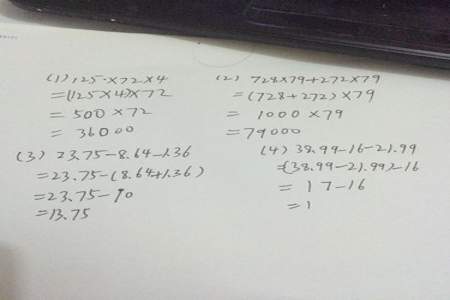 (1) 125×72×4
=(125×4)×72
=500×72
=36000
(2) 728×79+272×79
=(728+272)×79
=1000×79
=79000
(3) 23.75-8.64-1.36
=23.75-(8.64+1.36)
=23.75-10
=13.75
(4) 38.99-16-21.99
=(38.99-21.99)-16
=17-16
=1